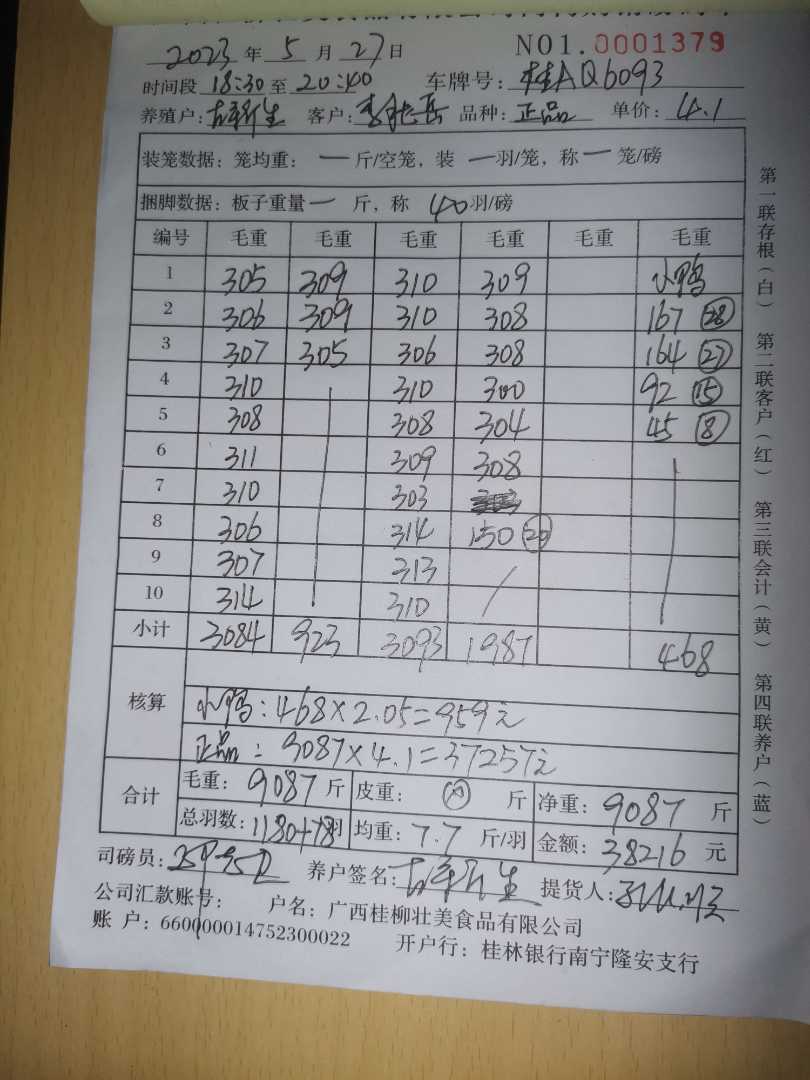 2023 年 5 月 27 日 NO1.0001379
时间段 18:30 至 20:40 车牌号: 桂AQ6093
养殖户: 客户: 品种: 正品 单价: 4.1
装笼数据: 笼均重: 一 斤/空笼, 装 一 羽/笼, 称 一 笼/磅
捆脚数据: 板子重量 一 斤, 称 40 羽/磅
编号 毛重 毛重 毛重 毛重 毛重 毛重
1 305 309 310 309 小鸭
2 306 309 310 308 167 (28)
3 307 305 306 308 164 (27)
4 310 310 300 92 (15)
5 308 308 304 45 (8)
6 311 309 308
7 310 303
8 306 314 150 (20)
9 307 313
10 314 310
小计 3084 923 3093 1987 468
核算
小鸭: 468×2.05=959元
正品: 9087×4.1=37257元
合计
毛重: 9087 斤 皮重: 斤 净重: 9087 斤
总羽数: 1180+78羽 均重: 7.7 斤/羽 金额: 38216 元
司磅员: 养户签名: 提货人:
公司汇款账号: 户名: 广西桂柳壮美食品有限公司
账 户: 660000014752300022 开户行: 桂林银行南宁隆安支行
第一联存根(白) 第二联客户(红) 第三联会计(黄) 第四联养户(蓝)